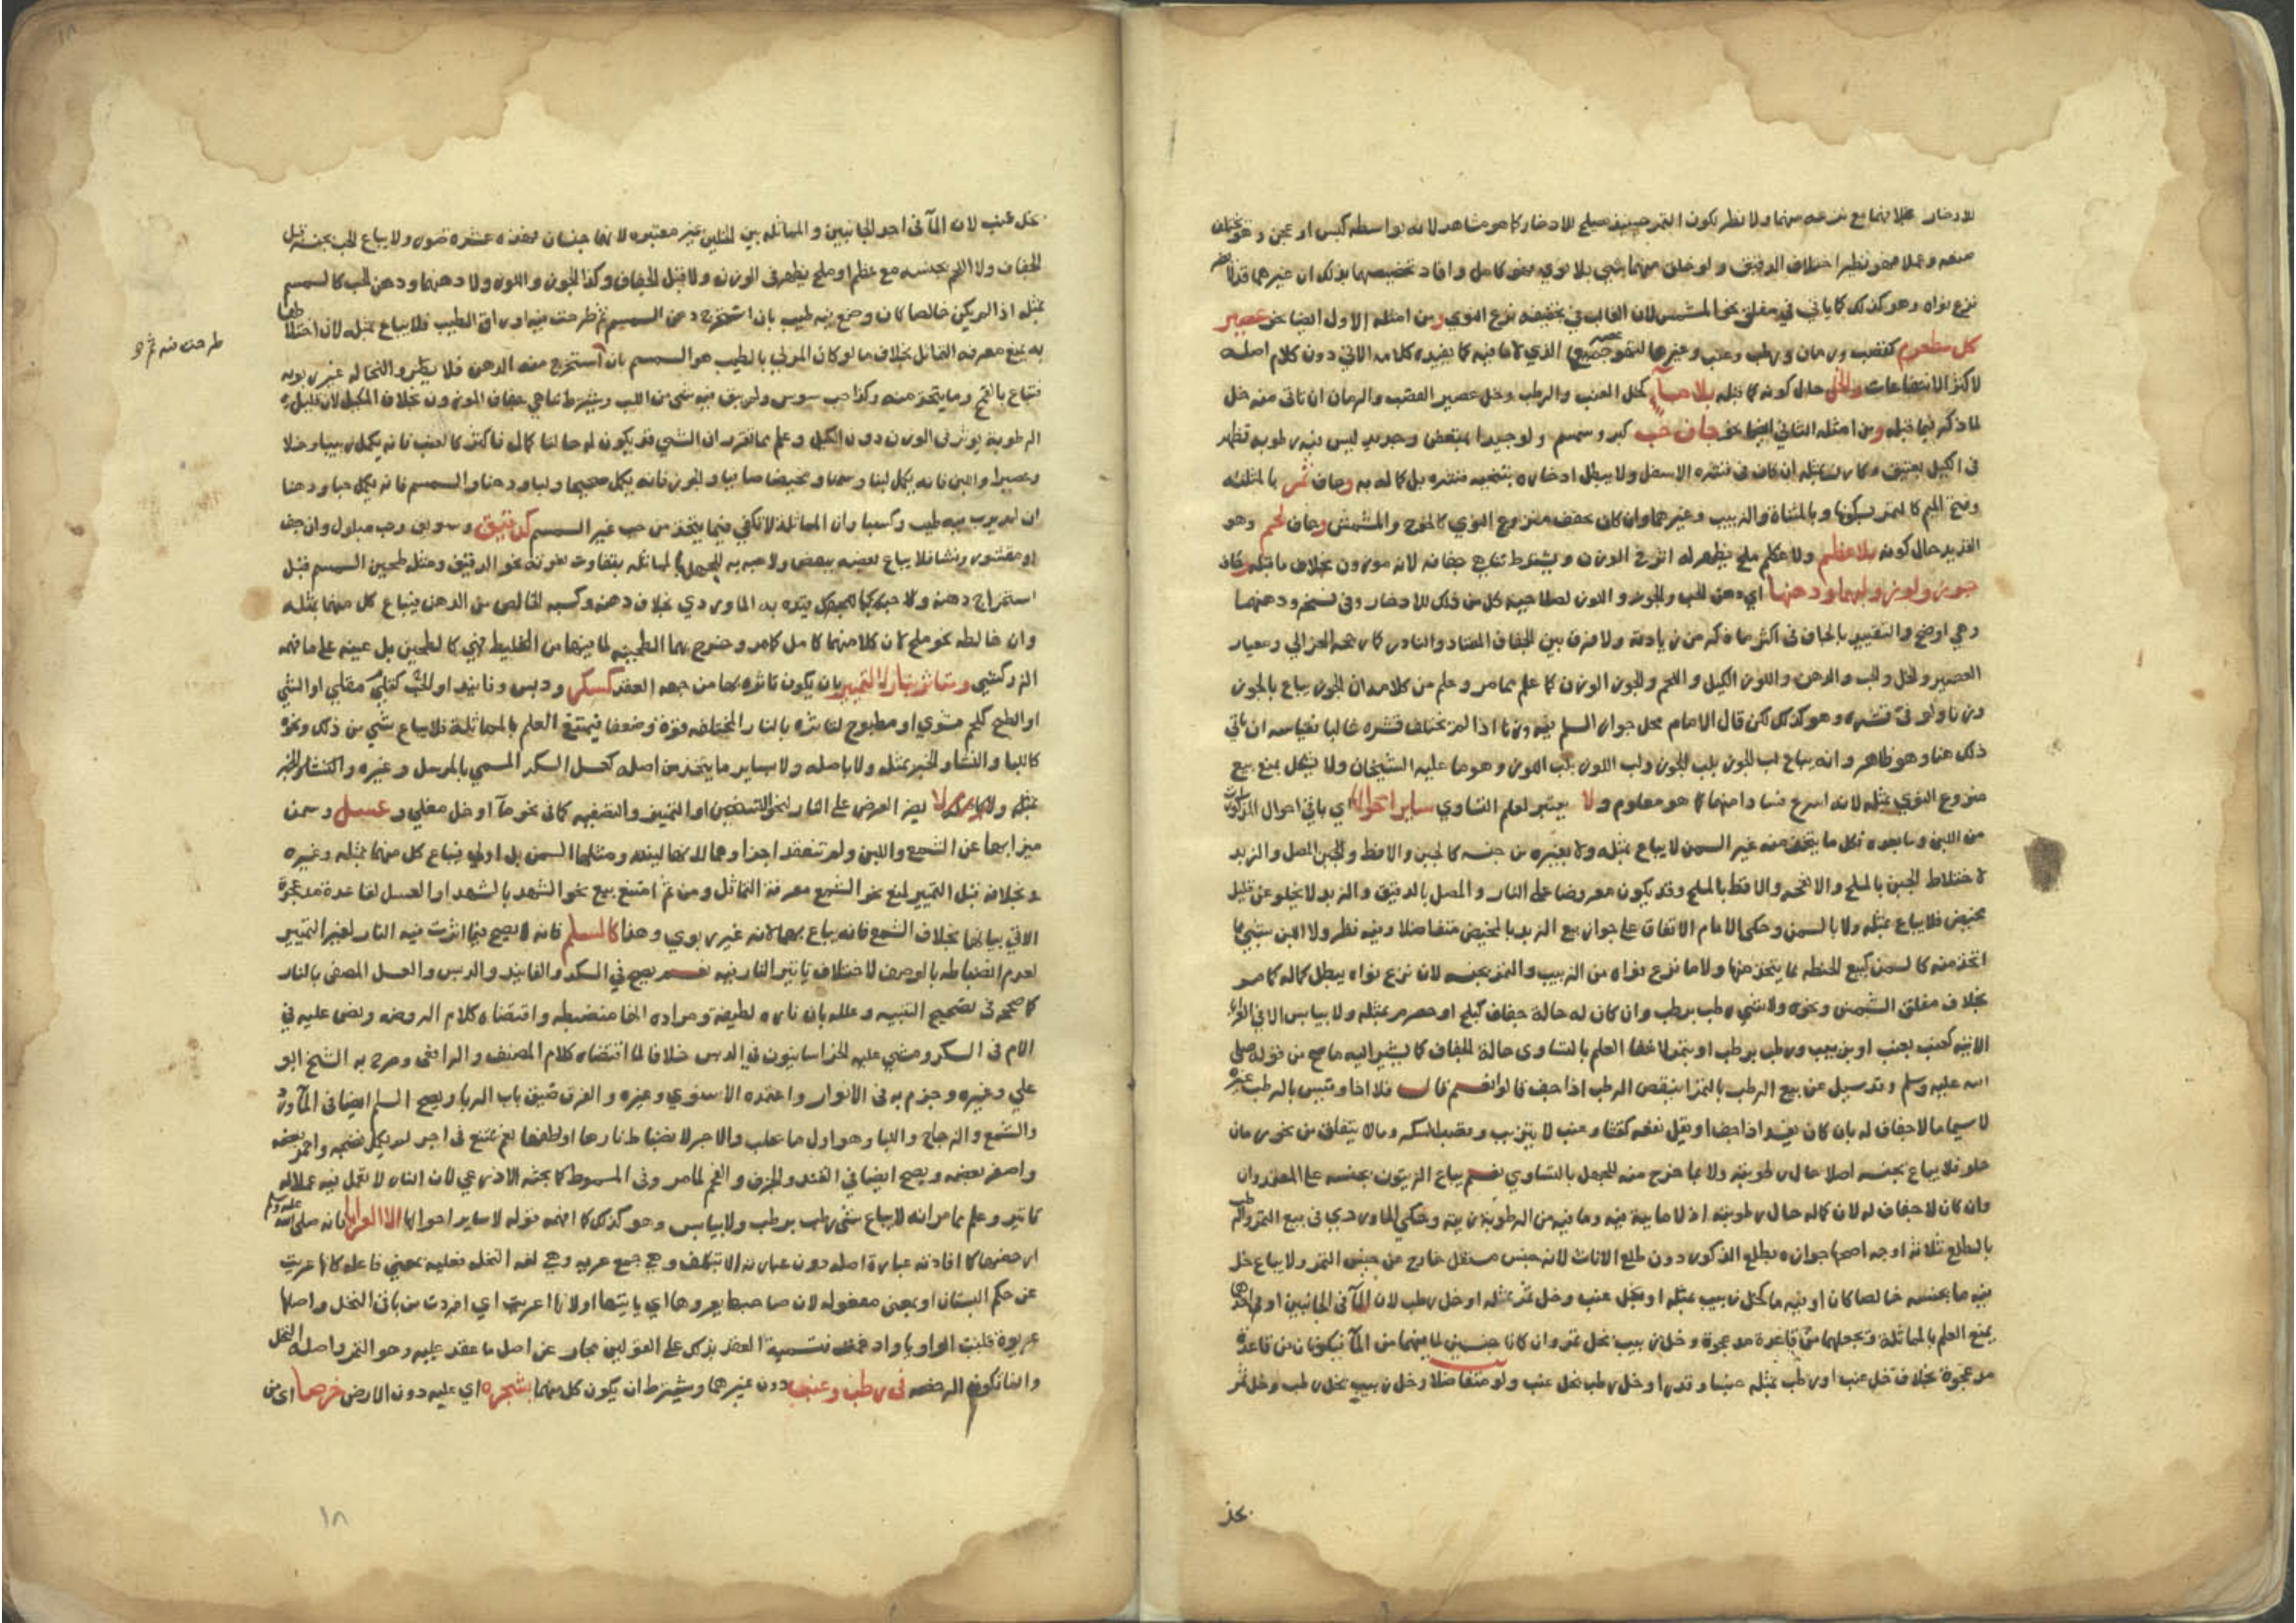 للادخار بخلافهما مع نزعه منهما ولا نظر لكون التمر حينئذ يصلح للادخار كما هو مشاهد لانه بواسطة كبس او عجن وهو
صنعه وعملا فهو نظير اختلاف الدقيق ولو خلق منهما شي بلا نوي فهو كامل وافاد تخصيصهما بذلك ان غيرهما
نزع نواه وهو كذلك كما ياتي في مفلق نحو المشمش لان الغالب في تجفيفه نزع النوي ومن امثلة الاول ايضا نحو عصير
كل مطعوم كقصب ورمان ورطب وعنب وغيرها الذي لا ما فيه كما يفيده كلامه الاتي دون كلام اصله
لاكثر الانتفاعات والخل حال كونه كما قبله بلا ماء كخل العنب والرطب وخل عصير القصب والرمان ان تاتى منه خل
لما ذكر فيما قبله ومن امثلة الثاني ايضا نحو جاف حب كبر وسمسم ولو جديدا ببعض وجديد ليس فيه رطوبة تظهر
في الكيل بعتيق وكارز بمثله ان كان في قشره الاسفل ولا يبطل ادخاره بتنحية قشره بل كماله به وجاف ثمر بالمثلثة
وفتح الميم كالتمر بسكونها وبالمثناة والزبيب وغيرهما وان كان بجفف منزوع النوي كالخوخ والمشمش وجاف لحم وهو
القديد حال كونه بلا عظم ولا ملح يظهر له اثر في الوزن ويشترط تناهي جفافه لانه موزون بخلاف ما قبله وكان
جوز ولوز ولبهما ودهنهما اي دهن الحب والجوز واللوز لصلاحية كل من ذلك للادخار وفي نسخه ودهنها
وهي اوضح والتقييد بالجاف في اكثر ما ذكر من زيادته ولا فرق بين الجفاف المعتاد والنادر كما رجحه الغزالي ومعيار
العصير والخل والحب والدهن واللوز الكيل واللحم والجوز الوزن كما علم مما مر وعلم من كلامه ان الجوز يباع بالجوز
وزنا ولو في قشره وهو كذلك لكن قال الامام محل جواز السلم فيه وزنا اذا لم تختلف قشره غالبا فقياسه ان ياتي
ذلك هنا وهو ظاهر وانه يباع لب الجوز بلب الجوز ولب اللوز بلب اللوز وهو ما عليه الشيخان ولنا قيل بمنع بيع
منزوع النوي بمثله لانه اسرع فسادا منهما كما هو معلوم ولا يعتبر لعلم التساوي ساير احواله اي باقي احوال المذكورات
من اللبن وما بعده فكل ما يتخذ منه غير السمن لا يباع بمثله ولا بغيره من جنسه كالجبن والاقط والمصل والزبد
لاختلاط الجبن بالملح والانفحه والاقط بالملح وقد يكون معروضا على النار والمصل بالدقيق والزبد لا يخلو عن قليل
مخيض فلا يباع بمثله ولا بالسمن وحكى الامام الاتفاق على جواز بيع الزبد بالمخيض متفاضلا وفيه نظر ولا اللبن بشي مما
اتخذ منه كالسمن كبيع الحنطه بما يتخذ منها ولا ما نزع نواه من الزبيب والتمر بجنسه لان نزع نواه يبطل كماله كما مر
بخلاف مفلق المشمش ونحوه ولا شي رطب برطب وان كان له حالة جفاف كبلح او حصرم بمثله ولا بيابس الا في العرايا
الاتية كعنب بعنب او بزبيب ورطب برطب او بتمر لاخفا العلم بالتساوى حالة الجفاف كما يشير اليه ما صح من قوله صلى
الله عليه وسلم وقد سيل عن بيع الرطب بالتمر اينقص الرطب اذا جف قالوا نعم قال فلا اذا وقيس بالرطب غيره
لا سيما ما لا جفاف له بان كان يفسد اذا جف او يقل نفعه كقثا وعنب لا يتزبب وقصب السكر وما لا يتفلق من نحو رمان
حلو فلا يباع بجنسه اصلا حال رطوبته ولا بما خرج منه للجهل بالتساوي نعم يباع الزيتون بجنسه على المعتمد وان
وان كان لا جفاف له لان كماله حال رطوبته اذ لا ماية فيه وما فيه من الرطوبة زيته وحكي الماوردي في بيع التمر والرطب
بالطلع ثلاثة اوجه اصحها جوازه بطلع الذكور دون طلع الاناث لانه جنس مستقل خارج عن جنس التمر ولا يباع خل
فيه ما بجنسه خالصا كان او فيه ما كخل زبيب بمثله او بخل عنب وخل تمر بمثله او خل رطب لان المآ في الجانبين او في احدهما
يمنع العلم بالمماثلة وبجعلهما من قاعدة مد عجوة وخل زبيب بخل تمر وان كانا جنسين لما فيهما من المآ فيكونان من قاعدة
مد عجوة بخلاف خل عنب او رطب بمثله جنسا وقدرا وخل رطب بخل عنب ولو متفاضلا وخل زبيب بخل رطب وخل تمر
بخل
بخل عنب لان المآ في احد الجانبين والمماثله بين الخلين غير معتبره لانهما جنسان فهذه عشرة صور ولا يباع الحب بجنسه قبل
الجفاف ولا اللحم بجنسه مع عظم او ملح يظهر في الوزن ولا قبل الجفاف وكذا الجوز واللوز ولا دهنهما ودهن الحب كالسمسم
بمثله اذا لم يكن خالصا كان وضع فيه طيب بان استخرج دهن السمسم ثم طرحت فيه اوراق الطيب فلا يباع بمثله لان اختلاطها
به يمنع معرفة التماثل بخلاف ما لو كان المربي بالطيب هو السمسم بان استخرج منه الدهن فلا يظهر والنخاله غير ربويه
فتباع بالقمح وما يتخذ منه وكذا حب سوس ولم يبق فيه شي من اللب ويشترط تناهي جفاف الموزون بخلاف المكيل لان قليل
الرطوبة يوثر في الوزن دون الكيل وعلم مما تقرر ان الشي قد يكون له حالتا كمال فاكثر كالعنب فانه يكمل زبيبا وخلا
وعصيرا واللبن فانه يكمل لبنا وسمنا ومخيضا صافيا والجوز فانه يكمل صحيحا ولبا ودهنا والسمسم فانه يكمل حبا ودهنا
ان لم يرب بطيب وكسبا وان المماثلة لا تكفي فيما يتخذ من حب غير السمسم كدقيق وسويق وحب مبلول وان جف
او مقشور ونشا فلا يباع بعضه ببعض ولا بحبه للجهل بالمماثلة بتفاوت نعومة نحو الدقيق ومثله طحين السمسم قبل
استخراج دهنه ولا حبه كما قيده به الماوردي بخلاف دهنه وكسبه الخالص من الدهن فيباع كل منهما بمثله
وان خالطه نحو ملح لان كلا منهما كامل كما مر وخرج بهما الطحينه لما فيها من التخليط فهي كالطحين بل عينه على ما فهمه
الزركشي وتتاثر بنار لا لتمييز بان يكون تاثره بها من جهة العقد كسكر ودبس وفانيد او القلي كقلي مقلي او الشي
او الطبخ كلحم مشوي او مطبوخ لتاثره بالنار المختلفه قوة وضعفا فيمتنع العلم بالمماثلة فلا يباع شي من ذلك ونحوه
كاللبا والنشا والخبز بمثله ولا باصله ولا بساير ما يتخذ من اصله كعسل السكر المسمي بالمرسل وغيره والنشا والخبز
بمثله ولا لا يضر العرض على النار لنحو التسخين او التمييز والتصفيه كما في نحو ماء او خل مغلي وعسل وسمن
ميزا بها عن الشمع واللبن ولم تنعقد اجزاوهما لانها لينه ومثلهما السمن بل اولي فيباع كل منهما بمثله وغيره
وبخلافه قبل التمييز لمنع نحو الشمع معرفة التماثل ومن ثم امتنع بيع نحو الشهد بالشهد او العسل لقاعدة مد عجوة
الاتي بيانها بخلاف الشمع فانه يباع بهما لانه غير ربوي وهذا كالسلم فانه لا يصح فيما اثرت فيه النار لغير التمييز
لعدم انضباطه بالوصف لاختلاف تاثير النار فيه نعم يصح في السكر والفانيد والدبس والعسل المصفى بالنار
كما صححه في تصحيح التنبيه وعلله بان ناره لطيفة ومراده انها منضبطه واقتضاه كلام الروضه ونص عليه في
الام في السكر ومشي عليه الخراسانيون في الدبس خلافا لما اقتضاه كلام المصنف والرافعي وصرح به الشيخ ابو
علي وغيره وجزم به في الانوار واعتمده الاسنوي وغيره والفرق ضيق باب الربا ويصح السلم ايضا في المآورد
والشمع والزجاج واللبا وهو اول ما يحلب والاجر لانضباط نارها او لطفها نعم يمتنع في اجر لم يكمل نضجه واحمر بعضه
واصفر بعضه ويصح ايضا في القند والخزف والفحم لما مر وفي المسموط كما بحثه الاذرعي لان النار لا تعمل فيه عملا له
تاثير وعلم مما مر انه لا يباع شي رطب برطب ولا بيابس وهو كذلك كما افهمه قوله لا ساير احوالها الا العرايا فانه صلى الله عليه وسلم
ارخص فيها كما افادته عبارة اصله دون عبارته الا بتكلف وهي جمع عرية وهي لغه النخله فعليه بمعني فاعله لانها عريت
عن حكم البستان او بمعنى مفعوله لان صاحبها يعروها اي ياتيها او لانها اعريت اي افردت من باقي النخل واصلها
عريوة قلبت الواو يا وادغمت فتسمية العقد بذلك على القولين مجاز عن اصل ما عقد عليه وهو التمر واصله النخل
وانما تكون الرخصه في رطب وعنب دون غيرهما ويشترط ان يكون كل منهما بشجره اي عليه دون الارض خرصا اي من
طرحت فيه ثم
١٨
١٨